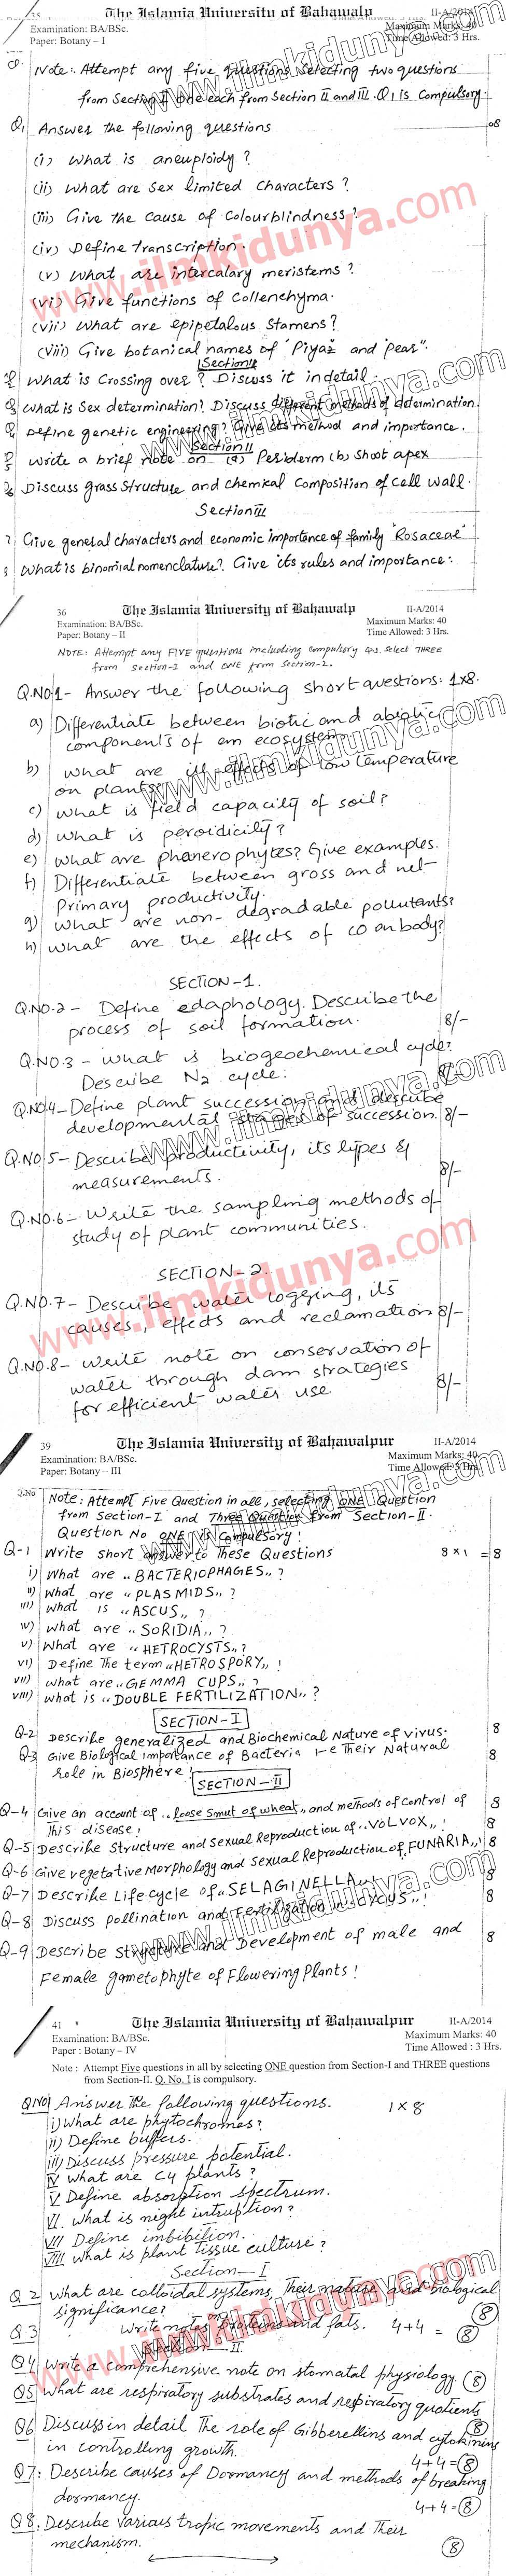 35 The Islamia University of Bahawalpur II-A/2014
Examination: BA/BSc. Maximum Marks: 40
Paper: Botany – I Time Allowed: 3 Hrs.
Note: Attempt any five questions selecting two questions
from Section I one each from Section II and III. Q1 is Compulsory.
Q1 Answer the following questions 08
(i) What is aneuploidy?
(ii) What are Sex limited Characters?
(iii) Give the cause of Colourblindness?
(iv) Define Transcription.
(v) What are intercalary meristems?
(vi) Give functions of Collenchyma.
(vii) What are epipetalous Stamens?
(viii) Give botanical names of "Piyaz and Pear".
Section I
What is Crossing over? Discuss it in detail.
Q3 What is Sex determination? Discuss different methods of determination.
Q4 Define genetic engineering? Give its method and importance.
Section II
Write a brief note on (a) Periderm (b) Shoot apex
Discuss grass Structure and chemical Composition of cell wall.
Section III
Give general characters and economic importance of family "Rosaceae"
What is binomial nomenclature? Give its rules and importance:
36 The Islamia University of Bahawalp II-A/2014
Examination: BA/BSc. Maximum Marks: 40
Paper: Botany – II Time Allowed: 3 Hrs.
NOTE: Attempt any FIVE questions including compulsory Q1. Select THREE
from Section-1 and ONE from Section-2.
Q.NO.1- Answer the following short questions: 1x8.
a) Differentiate between biotic and abiotic
components of an ecosystem
b) what are ill effects of low temperature
on plants?
c) what is field capacity of soil?
d) what is peroidicily?
e) what are phanerophytes? Give examples.
f) Differentiate between gross and net
primary productivity.
g) what are non-degradable pollutants?
h) what are the effects of CO on body?
SECTION-1.
Q.NO.2- Define edaphology. Describe the
process of soil formation. 8/-
Q.NO.3- what is biogeochemical cycle?
Describe N2 cycle. 8/-
Q.NO.4- Define plant succession and describe
developmental stages of succession. 8/-
Q.NO.5- Describe productivity, its types &
measurements. 8/-
Q.NO.6- Write the sampling methods of
study of plant communities.
SECTION-2.
Q.NO.7- Describe water logging, its
causes, effects and reclamation 8/-
Q.NO.8- write note on conservation of
water through dam strategies
for efficient water use. 8/-
39 The Islamia University of Bahawalpur II-A/2014
Examination: BA/BSc. Maximum Marks: 40
Paper: Botany – III Time Allowed: 3 Hrs.
Q.No Note: Attempt Five Question in all, selecting ONE Question
from Section-I and Three Question from Section-II.
Question No ONE is Compulsory!
Q-1 Write short answer to These Questions 8x1 = 8
i) What are "BACTERIOPHAGES"?
ii) What are "PLASMIDS"?
iii) What is "ASCUS"?
iv) What are "SORIDIA"?
v) What are "HETROCYSTS"?
vi) Define The term "HETROSPORY"!
vii) What are "GEMMA CUPS"?
viii) What is "DOUBLE FERTILIZATION"?
SECTION-I
Q-2 Describe generalized and Biochemical Nature of virus. 8
Q-3 Give Biological Importance of Bacteria i-e Their Natural 8
role in Biosphere!
SECTION-II
Q-4 Give an account of "loose smut of wheat" and methods of control of 8
This disease!
Q-5 Describe Structure and Sexual Reproduction of "VOLVOX"! 8
Q-6 Give vegetative Morphology and Sexual Reproduction of FUNARIA"! 8
Q-7 Describe Life Cycle of "SELAGINELLA" 8
Q-8 Discuss pollination and Fertilization in "CYCUS"! 8
Q-9 Describe Structure and Development of male and 8
Female gametophyte of Flowering Plants!
41 The Islamia University of Bahawalpur II-A/2014
Examination: BA/BSc. Maximum Marks: 40
Paper : Botany – IV Time Allowed : 3 Hrs.
Note : Attempt Five questions in all by selecting ONE question from Section-I and THREE questions
from Section-II. Q. No. I is compulsory.
Q NO1 Answer the following questions. 1 x 8
i) What are phytochromes?
ii) Define buffers.
iii) Discuss pressure potential.
IV What are C4 plants?
V Define absorption spectrum.
VI. What is night intruption?
VII Define imbibition.
VIII What is plant tissue culture?
Section-I
Q 2 What are colloidal systems, Their nature and biological
significance? (8)
Q 3 Write notes on proteins and fats. 4+4 = (8)
Section-II.
Q4 Write a comprehensive note on stomatal physiology. (8)
Q5 What are respiratory substrates and respiratory quotients
(8)
Q6 Discuss in detail The role of Gibberellins and cytokinins
in controlling growth. 4+4=(8)
Q7: Describe causes of Dormancy and methods of breaking
dormancy. 4+4=(8)
Q8: Describe various tropic movements and Their
mechanism. (8)
www.ilmkidunya.com